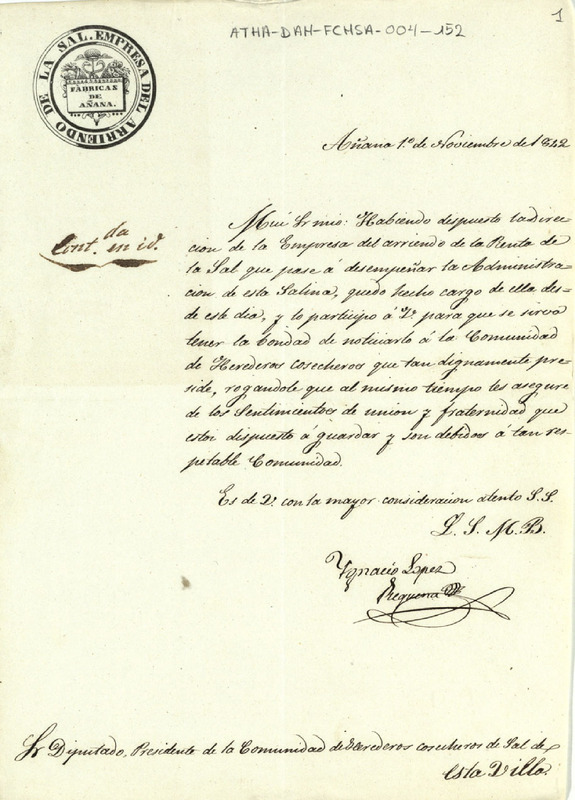 1
ATHA-DAH-FCHSA-004-152
EMPRESA DEL ARRIENDO DE LA SAL.
FÁBRICAS
DE
AÑANA.
Añana 1.º de Noviembre de 1842
Contda. en id.
Mui Sr mio: Habiendo dispuesto la Direc
cion de la Empresa del arriendo de la Renta de
la Sal que pase á desempeñar la Administra
cion de esta Salina, quedo hecho cargo de ella des-
de este dia, y lo participo á V. para que se sirva
tener la bondad de noticiarlo á la Comunidad
de Herederos cosecheros que tan dignamente pre-
side, rogandole que al mismo tiempo les asegure
de los Sentimientos de union y fraternidad que
estoi dispuesto á guardar y son debidos á tan res-
petable Comunidad.
Es de V. con la mayor consideracion atento S. S.
Q. S. M. B.
Ygnacio Lopez
Requena
Sr Diputado, Presidente de la Comunidad de Herederos cosecheros de Sal de
esta Villa.